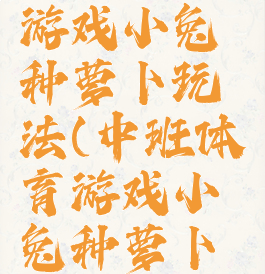 游戏小兔
种萝卜玩
法(中班体
育游戏小
兔种萝卜